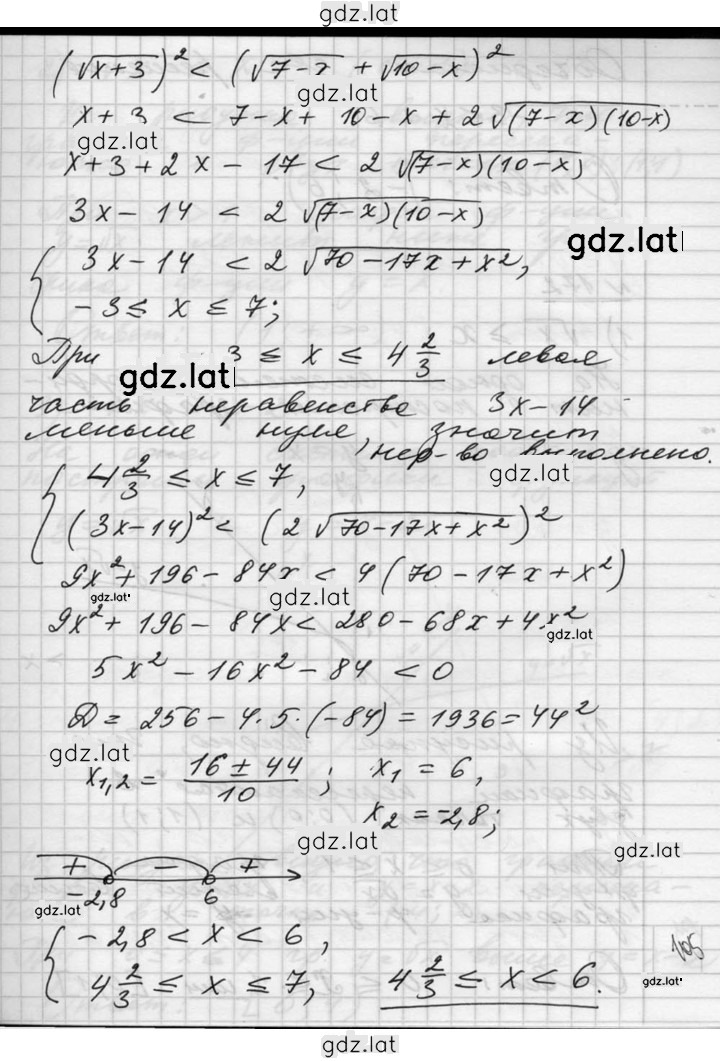 gdz.lat
(√x+3)² < (√7-x + √10-x)²
gdz.lat
x+3 < 7-x+10-x+2√(7-x)(10-x)
gdz.lat
x+3+2x-17 < 2√(7-x)(10-x)
3x-14 < 2√(7-x)(10-x)
gdz.lat
{ 3x-14 < 2√70-17x+x²,
-3 ≤ x ≤ 7;
При 3 ≤ x ≤ 4 2/3 левая
gdz.lat
часть неравенства 3x-14
меньше нуля, значит
нер-во выполнено.
gdz.lat
{ 4 2/3 ≤ x ≤ 7,
(3x-14)² < (2√70-17x+x²)²
9x²+196-84x < 4(70-17x+x²)
gdz.lat
gdz.lat
9x²+196-84x < 280-68x+4x²
gdz.lat
5x²-16x²-84 < 0
D = 256-4·5·(-84) = 1936 = 44²
gdz.lat
x1,2 = 16±44/10 ; x1 = 6,
x2 = -2,8;
gdz.lat
gdz.lat
+ - +
-2,8 6
gdz.lat
{ -2,8 < x < 6,
4 2/3 ≤ x ≤ 7, 4 2/3 ≤ x < 6.
105
gdz.lat
gdz.lat